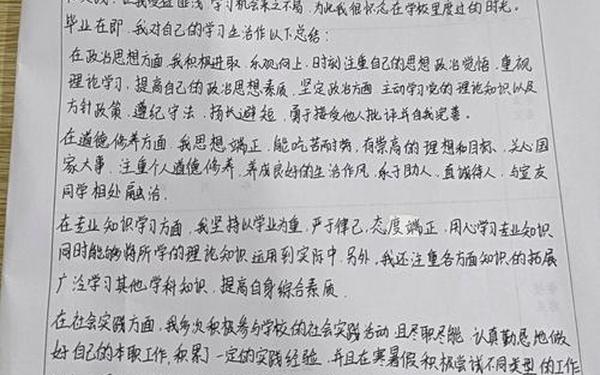 学习机会来之不易，为此我很怀念在学校里度过的时光。
毕业在即，我对自己的学习生活作以下总结：
在政治思想方面，我积极进取、乐观向上，时刻注重自己的思想政治觉悟，重视
理论学习，提高自己的政治思想素质，坚定政治方面，主动学习党的理论知识以及
方针政策，遵纪守法，扬长避短，勇于接受他人批评并自我完善。
在道德修养方面，我思想端正，能吃苦而耐劳，有崇高的理想和目标，关心国
家大事，注重个人道德修养，养成良好的生活作风，乐于助人，真诚待人，与室友
同学相处融洽。
在专业知识学习方面，我坚持以学业为重，严于律己，态度端正，用心学习专业知识
同时能够将所学的理论知识运用到实际中，另外，我还注重各方面知识的拓展
广泛学习其他学科知识，提高自身综合素质。
在社会实践方面，我多次积极参与学校的社会实践活动且尽职尽能，认真勤恳地做
好自己的本职工作，积累了一定的实践经验，并且在寒暑假积极尝试不同类型的工作